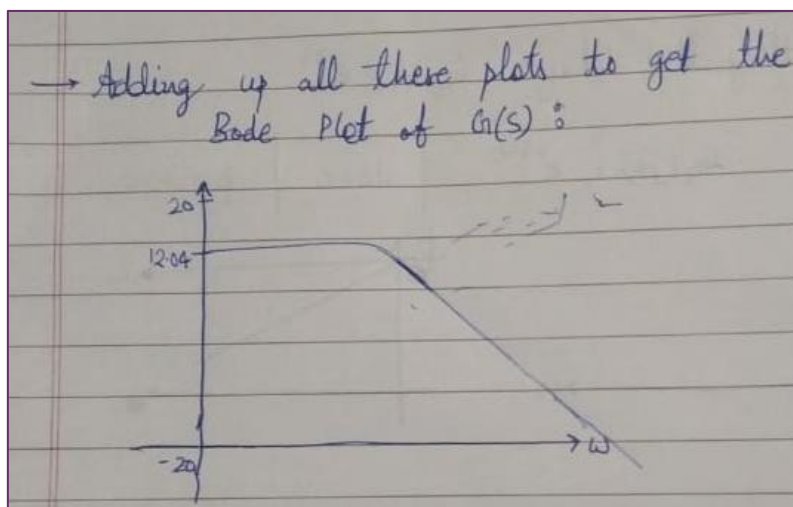 → Adding up all these plots to get the
Bode Plot of G(S) :
20
12.04
-20
ω